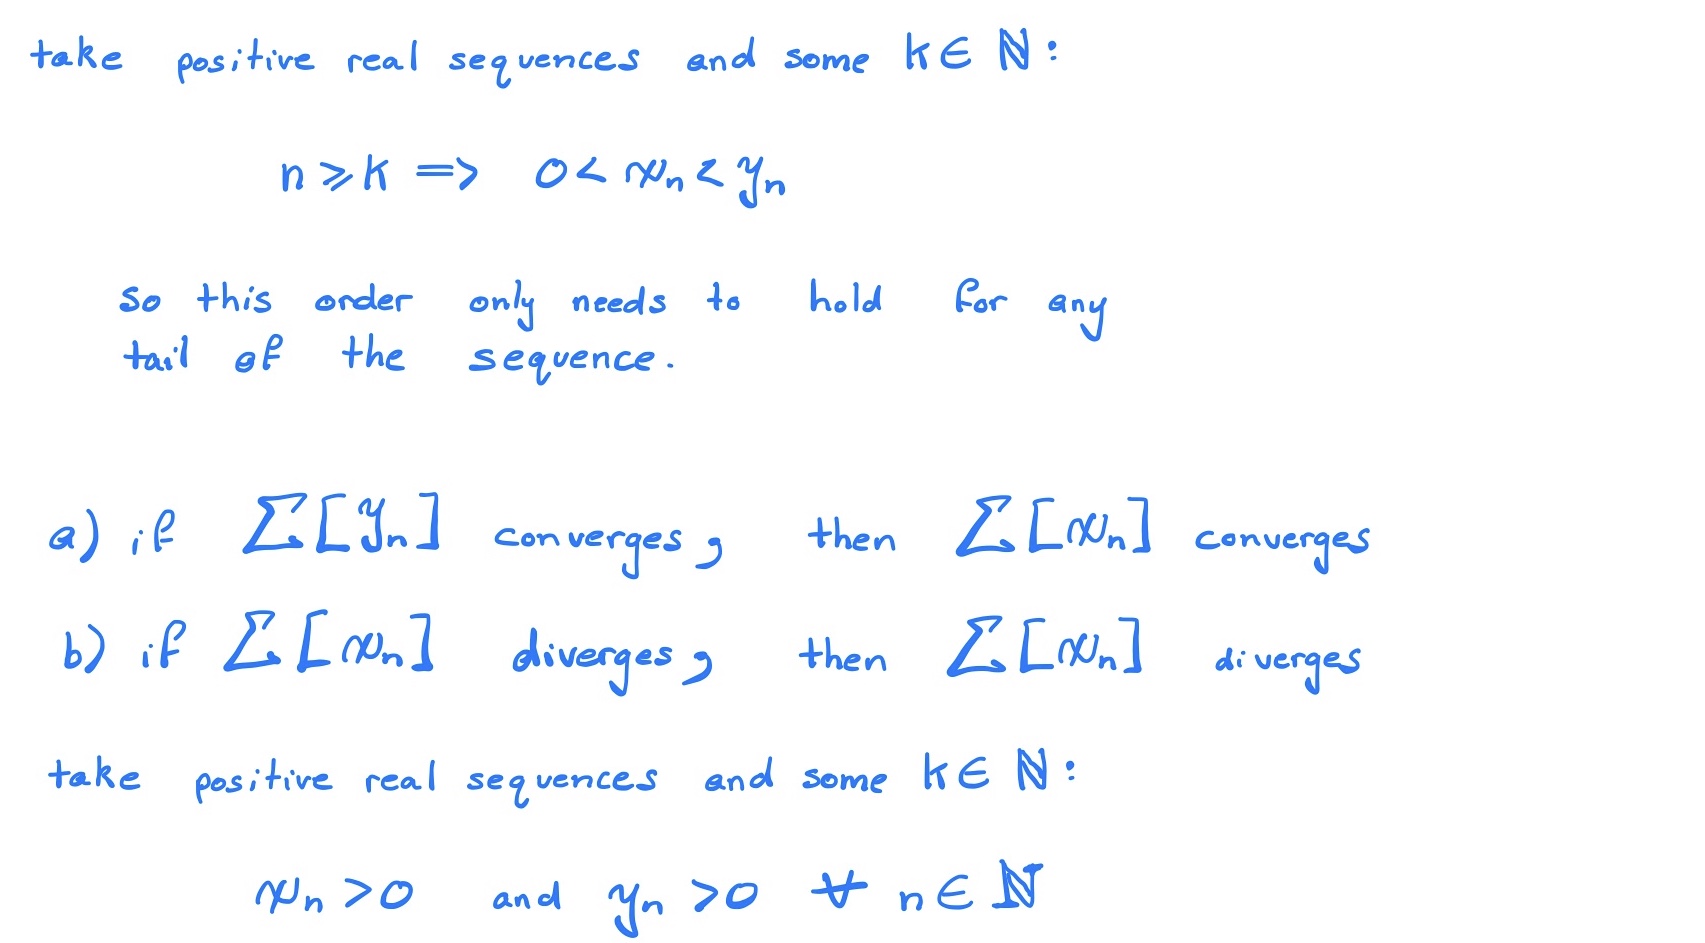 take positive real sequences and some k ∈ ℕ:
n ⩾ k ⟹ 0 < xₙ < yₙ
so this order only needs to hold for any
tail of the sequence.
a) if Σ[yₙ] converges, then Σ[xₙ] converges
b) if Σ[xₙ] diverges, then Σ[xₙ] diverges
take positive real sequences and some k ∈ ℕ:
xₙ > 0 and yₙ > 0 ∀ n ∈ ℕ